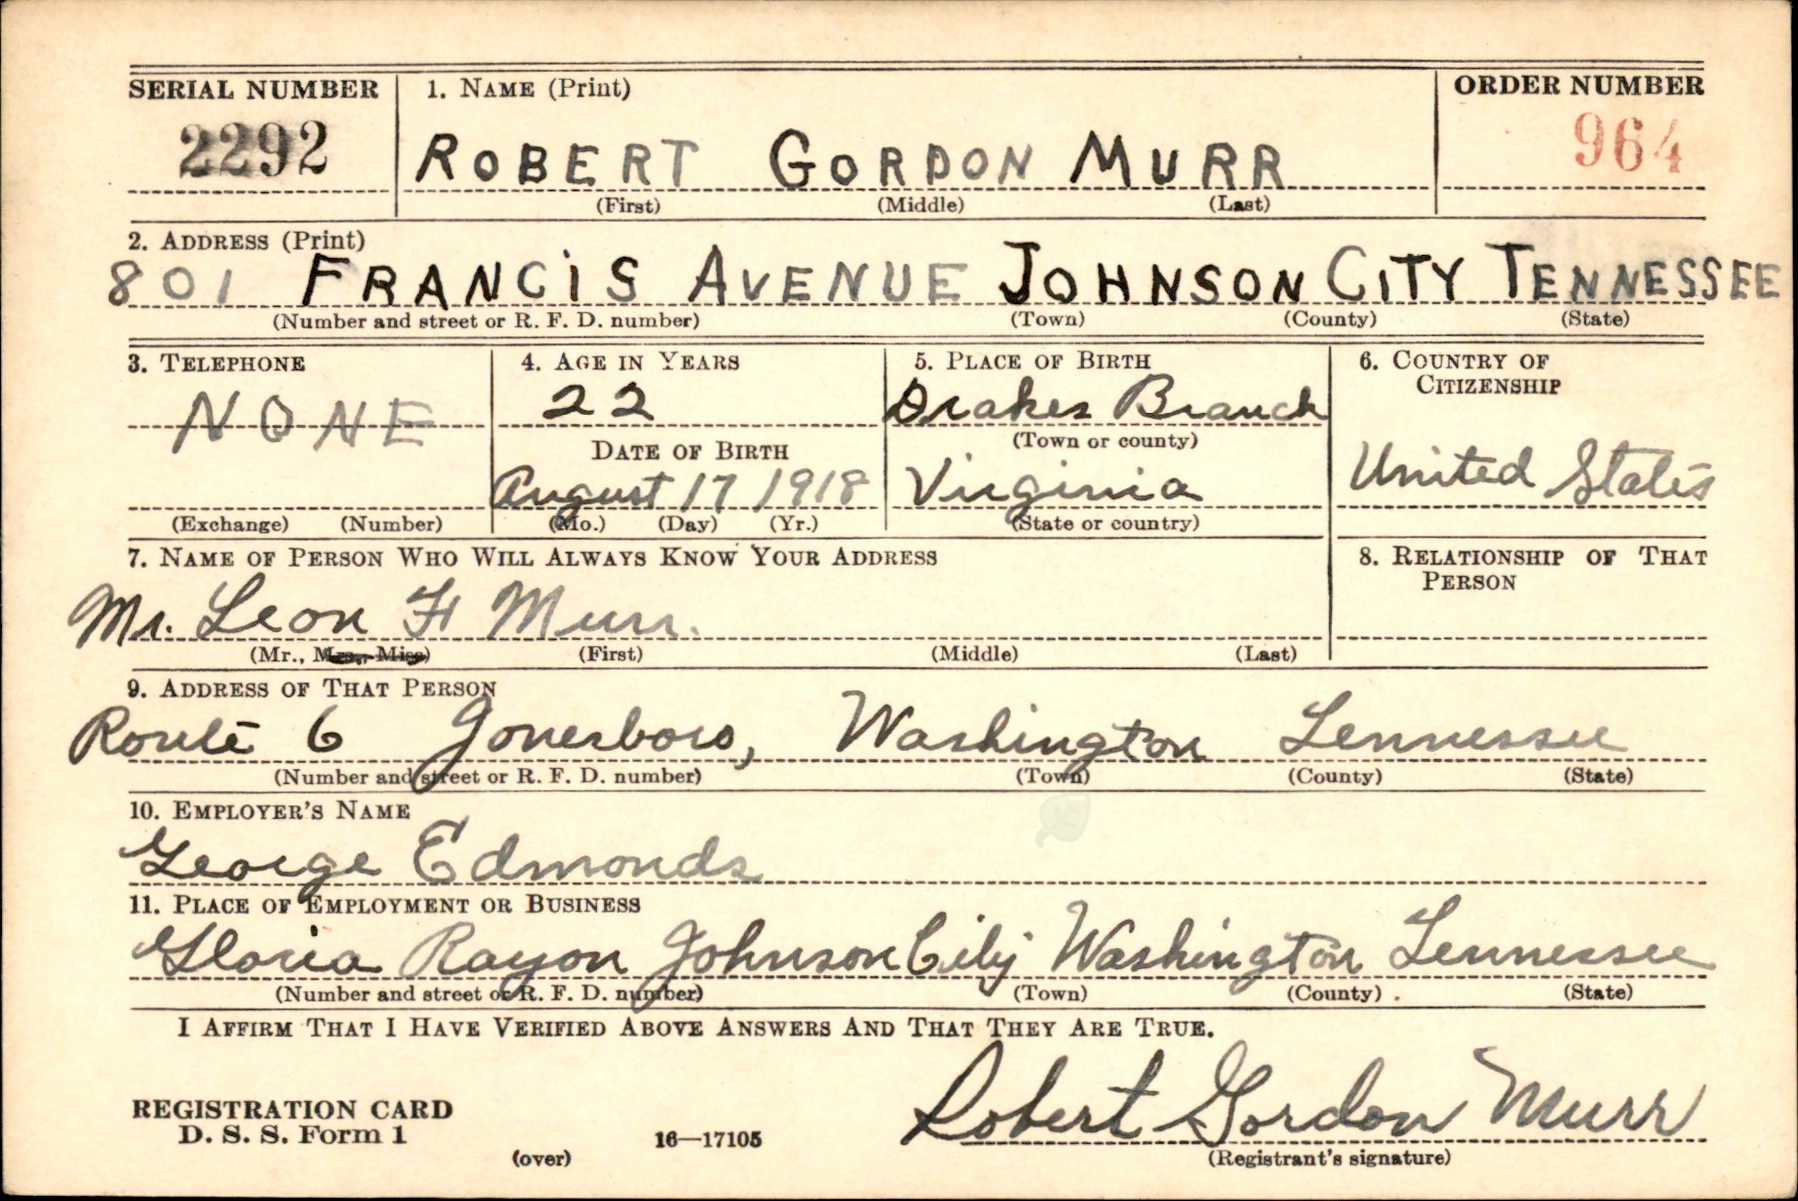 SERIAL NUMBER 1. NAME (Print) ORDER NUMBER
2292 ROBERT GORDON MURR 964
(First) (Middle) (Last)
2. ADDRESS (Print)
801 FRANCIS AVENUE JOHNSON CITY TENNESSEE
(Number and street or R. F. D. number) (Town) (County) (State)
3. TELEPHONE 4. AGE IN YEARS 5. PLACE OF BIRTH 6. COUNTRY OF
CITIZENSHIP
NONE 22 Drakes Branch
DATE OF BIRTH (Town or county)
August 17 1918 Virginia United States
(Exchange) (Number) (Mo.) (Day) (Yr.) (State or country)
7. NAME OF PERSON WHO WILL ALWAYS KNOW YOUR ADDRESS 8. RELATIONSHIP OF THAT
PERSON
Mr. Leon H Murr.
(Mr., Mrs., Miss) (First) (Middle) (Last)
9. ADDRESS OF THAT PERSON
Route 6 Jonesboro, Washington Tennessee
(Number and street or R. F. D. number) (Town) (County) (State)
10. EMPLOYER'S NAME
George Edmonds
11. PLACE OF EMPLOYMENT OR BUSINESS
Gloria Rayon Johnson City Washington Tennessee
(Number and street or R. F. D. number) (Town) (County) (State)
I AFFIRM THAT I HAVE VERIFIED ABOVE ANSWERS AND THAT THEY ARE TRUE.
Robert Gordon Murr
REGISTRATION CARD
D. S. S. Form 1 16—17105
(over) (Registrant's signature)